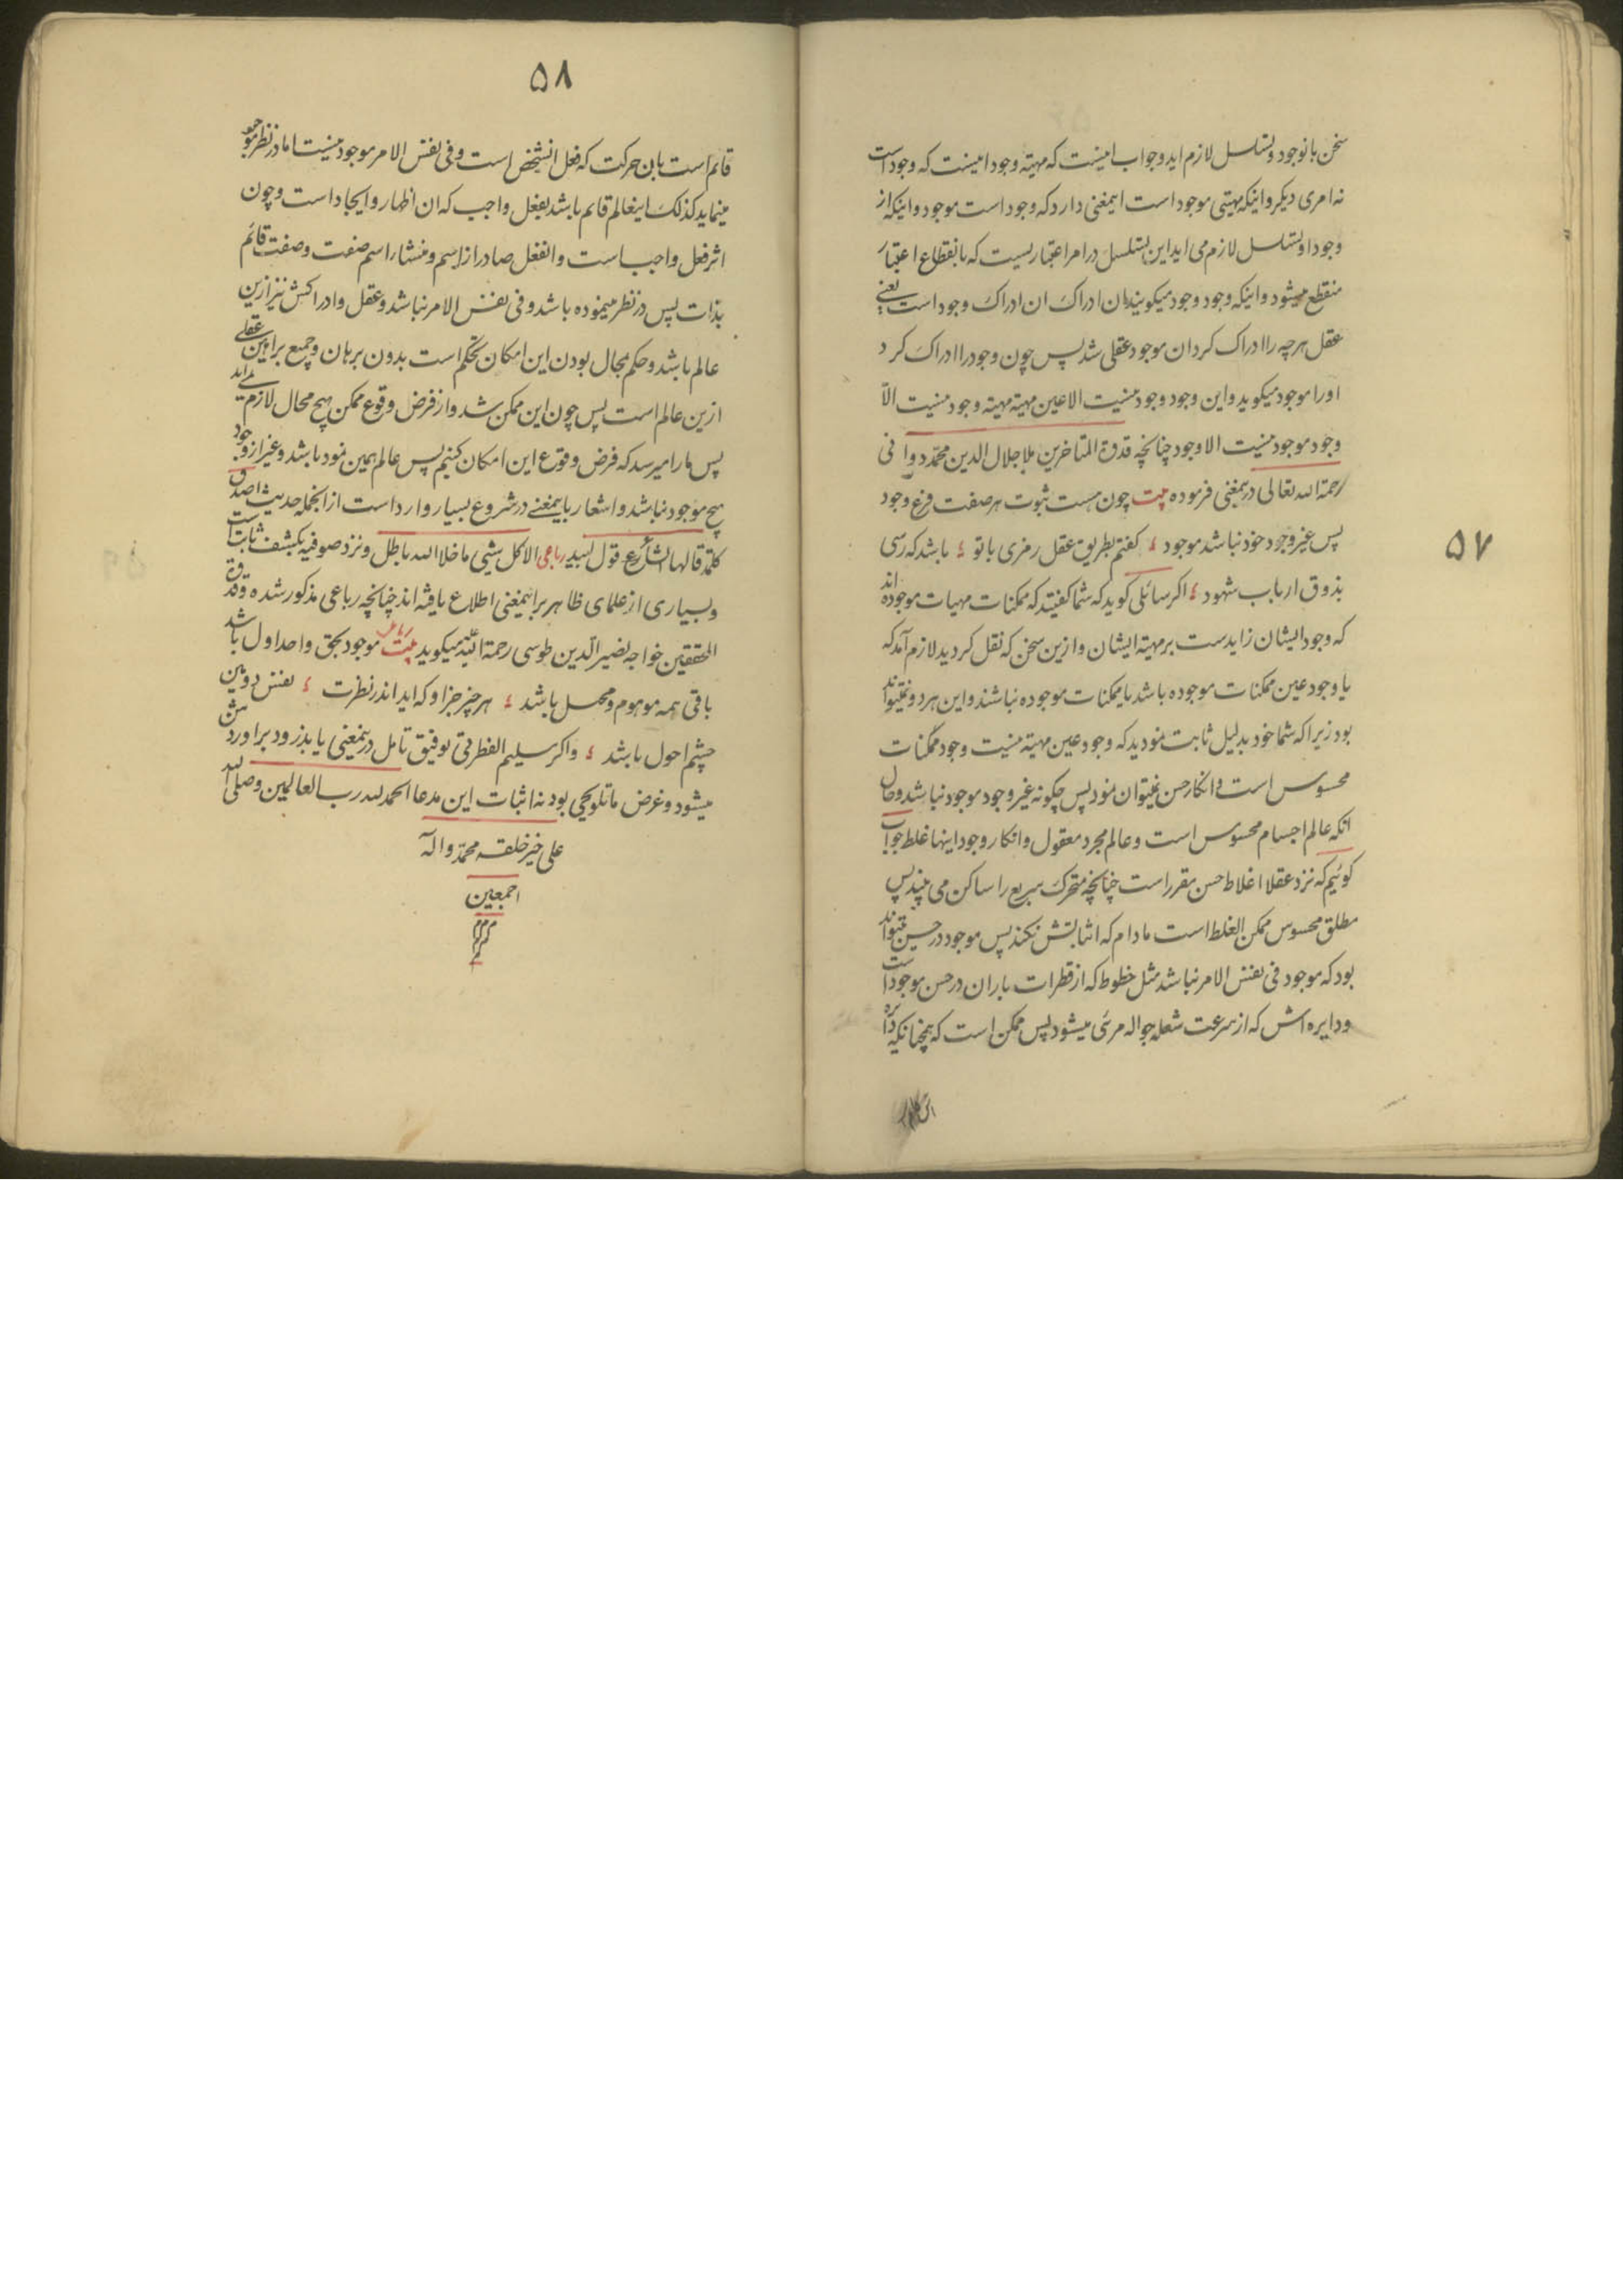 ۵۷
سخن با نوجود و تسلسل لازم اید وجواب اینست که مهیة وجود اینست که وجود است
نه امری دیکر و اینکه مهیتی موجود است اینمعنی دارد که وجود است موجود و اینکه از
وجود او تسلسل لازم می اید این تسلسل در امر اعتباریست که بانقطاع اعتبار
منقطع میشود و اینکه وجود وجود میکویند بان ادراک ان ادراک وجود است یعنے
عقل هرچه را ادراک کرد ان موجود عقلی شد پس چون وجود را ادراک کرد
اورا موجود میکوید و این وجود وجود نیست الا عین مهیة مهیة وجود نیست الّا
وجود موجود نیست الا وجود چنانچه قدوة المتاخرین ملا جلال الدین محمّد دوانی
رحمة الله تعالی درینمعنی فرموده بیت چون هست ثبوت هر صفت فرع وجود
پس غیر وجود خود نباشد موجود ؛ کفتم بطریق عقل رمزی با تو ؛ باشد که رسی
بذوق ارباب شهود ؛ اکر سائلی کوید که شما کفتید که ممکنات مهیات موجوده اند
که وجود ایشان زایدست بر مهیة ایشان و ازین سخن که نقل کردید لازم آمد که
یا وجود عین ممکنات موجوده باشد یا ممکنات موجوده نباشند و این هر دو نمیتواند
بود زیرا که شما خود بدلیل ثابت نمودید که وجود عین مهیة نیست وجود ممکنات
محسوس است و انکار حس نمیتوان نمود پس چکونه غیر وجود موجود نباشد وحال
انکه عالم اجسام محسوس است و عالم مجرد معقول و انکار وجود اینها غلط جواب
کوئیم که نزد عقلا اغلاط حس مقرر است چنانچه متحرک سریع را ساکن می بیند پس
مطلق محسوس ممکن الغلط است مادام که اثباتش نکند پس موجود در حس میتواند
بود که موجود فی نفس الامر نباشد مثل خطوط که از قطرات باران در حس موجود است
ودایره اتش که از سرعت شعله جواله مرئی میشود پس ممکن است که همچنانکه دائره
۵۸
قائم است بان حرکت که فعل انشخص است و فی نفس الامر موجود نیست اما در نظر موجود
مینماید کذلک اینعالم قائم باشد بفعل واجب که ان اظهار و ایجاد است وچون
اثر فعل واجب است وانفعل صادر از اسم و منشاء اسم صفت وصفت قائم
بذات پس در نظر مینموده باشد و فی نفس الامر نباشد و عقل و ادراکش نیز ازین
عالم باشد وحکم بمحال بودن این امکان تحکم است بدون برهان و جمیع براهین عقلے
ازین عالم است پس چون این ممکن شد و از فرض وقوع ممکن هیچ محال لازم نمے اید
پس ما را میرسد که فرض وقوع این امکان کنیم پس عالم همین نمود باشد و غیر از وجود
هیچ موجود نباشد و اشعار باینمعنے در شروع بسیار وارد است از انجمله حدیث اصدق
کلمة قالها الشاعر قول لبید رباعی الا کل شیئ ما خلا الله باطل و نزد صوفیه بکشف ثابت است
وبسیاری از علمای ظاهر بر اینمعنی اطلاع یافته اند چنانچه رباعی مذکور شده و قدوة
المحققین خواجه نصیر الدین طوسی رحمة الله میکوید بیت رباعی موجود بحق واحد اول باشد
باقی همه موهوم و مخیل باشد ؛ هر چیز جز او که اید اندر نظرت ؛ نقش دومین
چشم احول باشد ؛ واکر سلیم الفطرتی توفیق تامل درینمعنی یابد زود براو روشن
میشود وغرض ما تلویحی بود نه اثبات این مدعا الحمد لله رب العالمین وصلی الله
علی خیر خلقه محمّد واله
اجمعین